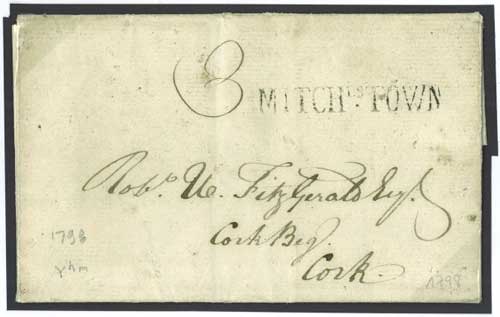 3 MITCHLS:TOWN
Robt. U. FitzGerald Esqr.
Cork Beg.
Cork.
1798
1798